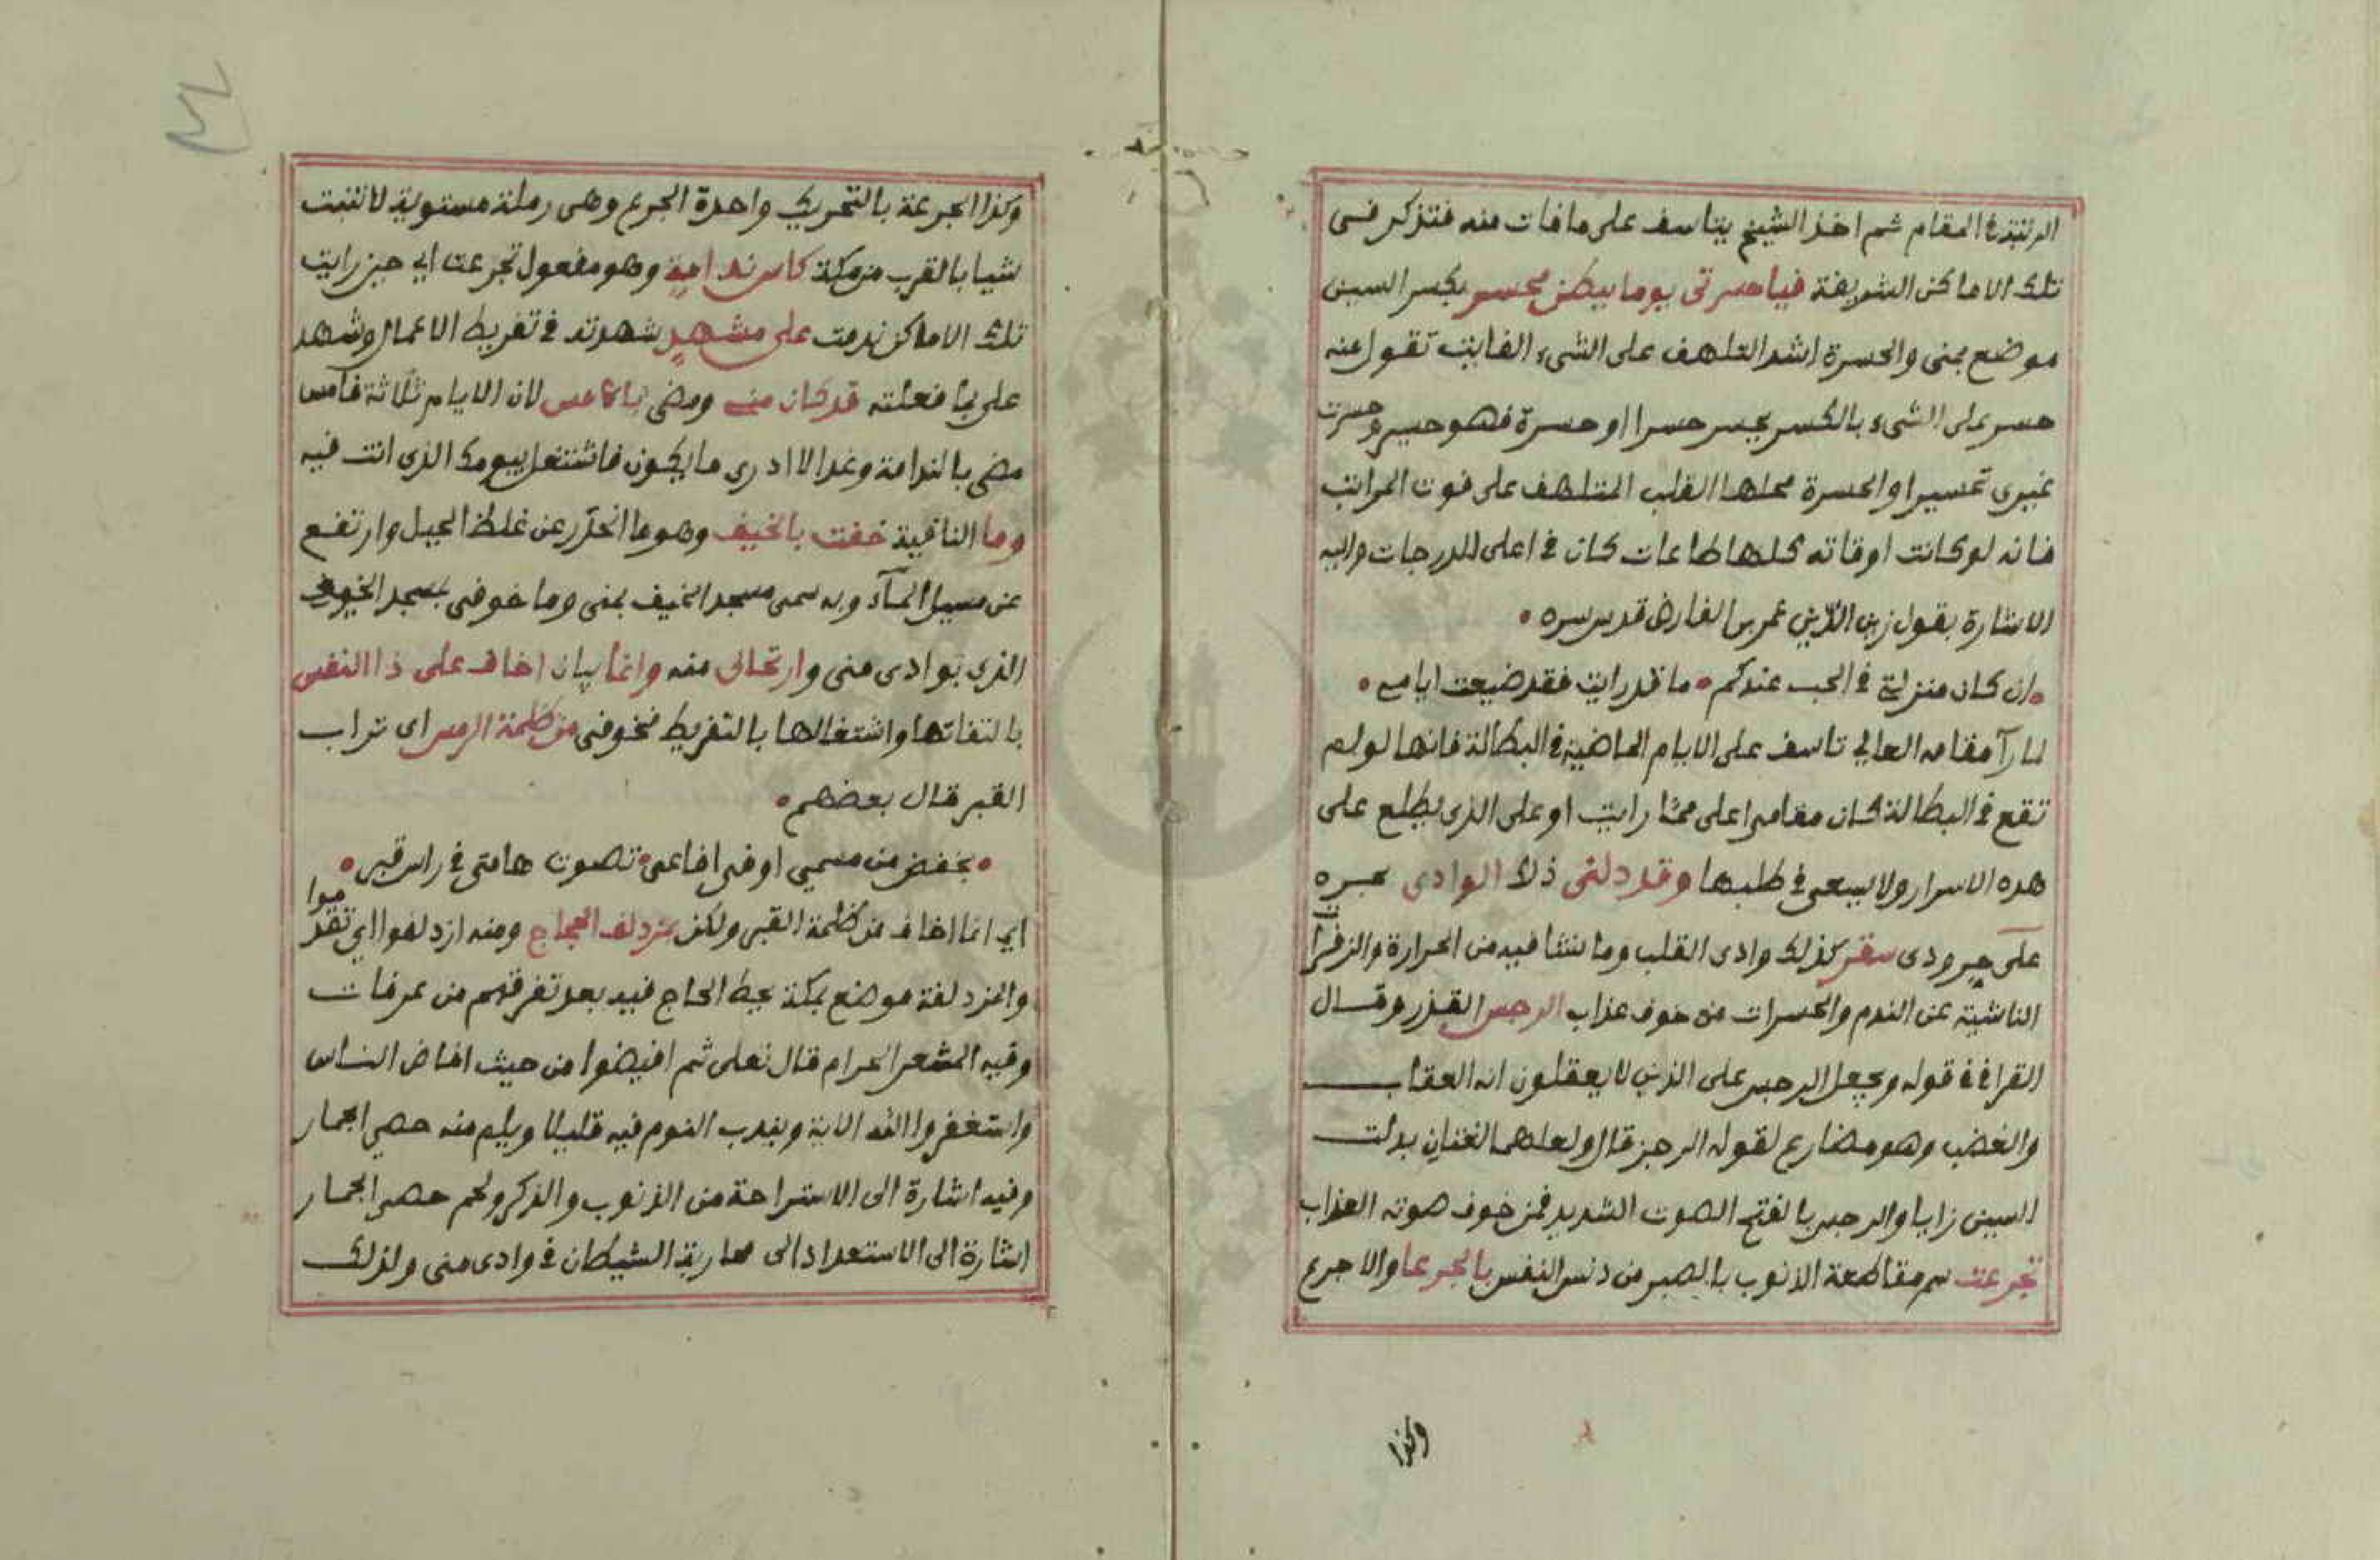 الرتبة في المقام ثم اخذ الشيخ يتاسف على مافات منه فتذكر في
تلك الاماكن الشريفة فياحسرتي يوما ببطن محسر بكسر السين
موضع بمنى والحسرة اشد التلهف على الشيء الفايت تقول منه
حسر على الشيء بالكسر يحسر حسرا او حسرة فهو حسير وحسرت
غيري تحسيرا والحسرة محلها القلب المتلهف على فوت المراتب
فانه لو كانت اوقاته كلها طاعات كان في اعلى الدرجات واليه
الاشارة بقول زين الدين عمر بن الفارض قدس سره
ان كان منزلتي في الحب عندكم ما قد رايت فقد ضيعت ايامي
لما رآ مقامه العالي تاسف على الايام الماضية في البطالة فانها لو لم
تقع في البطالة كان مقامه اعلى مما رايت او على الذي يطلع على
هذه الاسرار ولا يسعى في طلبها وقد دلني ذلك الوادي
على سقر كذلك وادى القلب وما ينشا فيه من الحرارة والزفرات
الناشية عن الندم والحسرات من خوف عذاب الرجس القذر وقال
الفرا في قوله ويجعل الرجس على الذين لا يعقلون انه العقاب
والغضب وهو مضارع لقوله الرجز قال ولعلهما لغتان بدلت
السين زايا والرجس بالفتح الصوت الشديد فمن خوف صوته العذاب
تجرعت سم مقاطعة الذنوب بالصبر من دنس النفس بالجرعا والاجرع
وكذا
وكذا الجرعة بالتحريك واحدة الجرع وهي رملة مستوية لا تنبت
شيا بالقرب من مكة كاس ندامة وهو مفعول تجرعت اي حين رايت
تلك الاماكن ندمت على مشهد شهدته في تفريط الاعمال وشهد
على بما فعلته قد كان مني ومضى بالامس لان الايام ثلاثة فامس
مضى بالندامة وغدا لا ادري ما يكون فاشتغل بيومك الذي انت فيه
وما النافية خفت بالخيف وهو ما انحدر عن غلظ الجبل وارتفع
عن مسيل المآء وبه سمى مسجد الخيف بمنى وما خوفى بمسجد الخيف
الذي بوادى منى وارتحالى منه وانما بيان اخاف على ذا النفس
بالتفاتها واشتغالها بالتفريط فخوفى من ظلمة الرمس اى تراب
القبر قال بعضهم
بخفض من مسمي او في افاعي تصوت هامتي في راس قبر
اي انما اخاف من ظلمة القبر ولكن بمزدلف الحجاج ومنه ازدلفوا اي تقدموا
والمزدلفة موضع بمكة يحط الحاج فيه بعد تفرقهم من عرفات
وفيه المشعر الحرام قال تعلى ثم افيضوا من حيث افاض الناس
واستغفروا الله الاية ويندب النوم فيه قليلا ويلم منه حصى الجمار
وفيه اشارة الى الاستراحة من الذنوب والذكر ولم حصى الجمار
اشارة الى الاستعداد الى محاربة الشيطان في وادى منى ولذلك